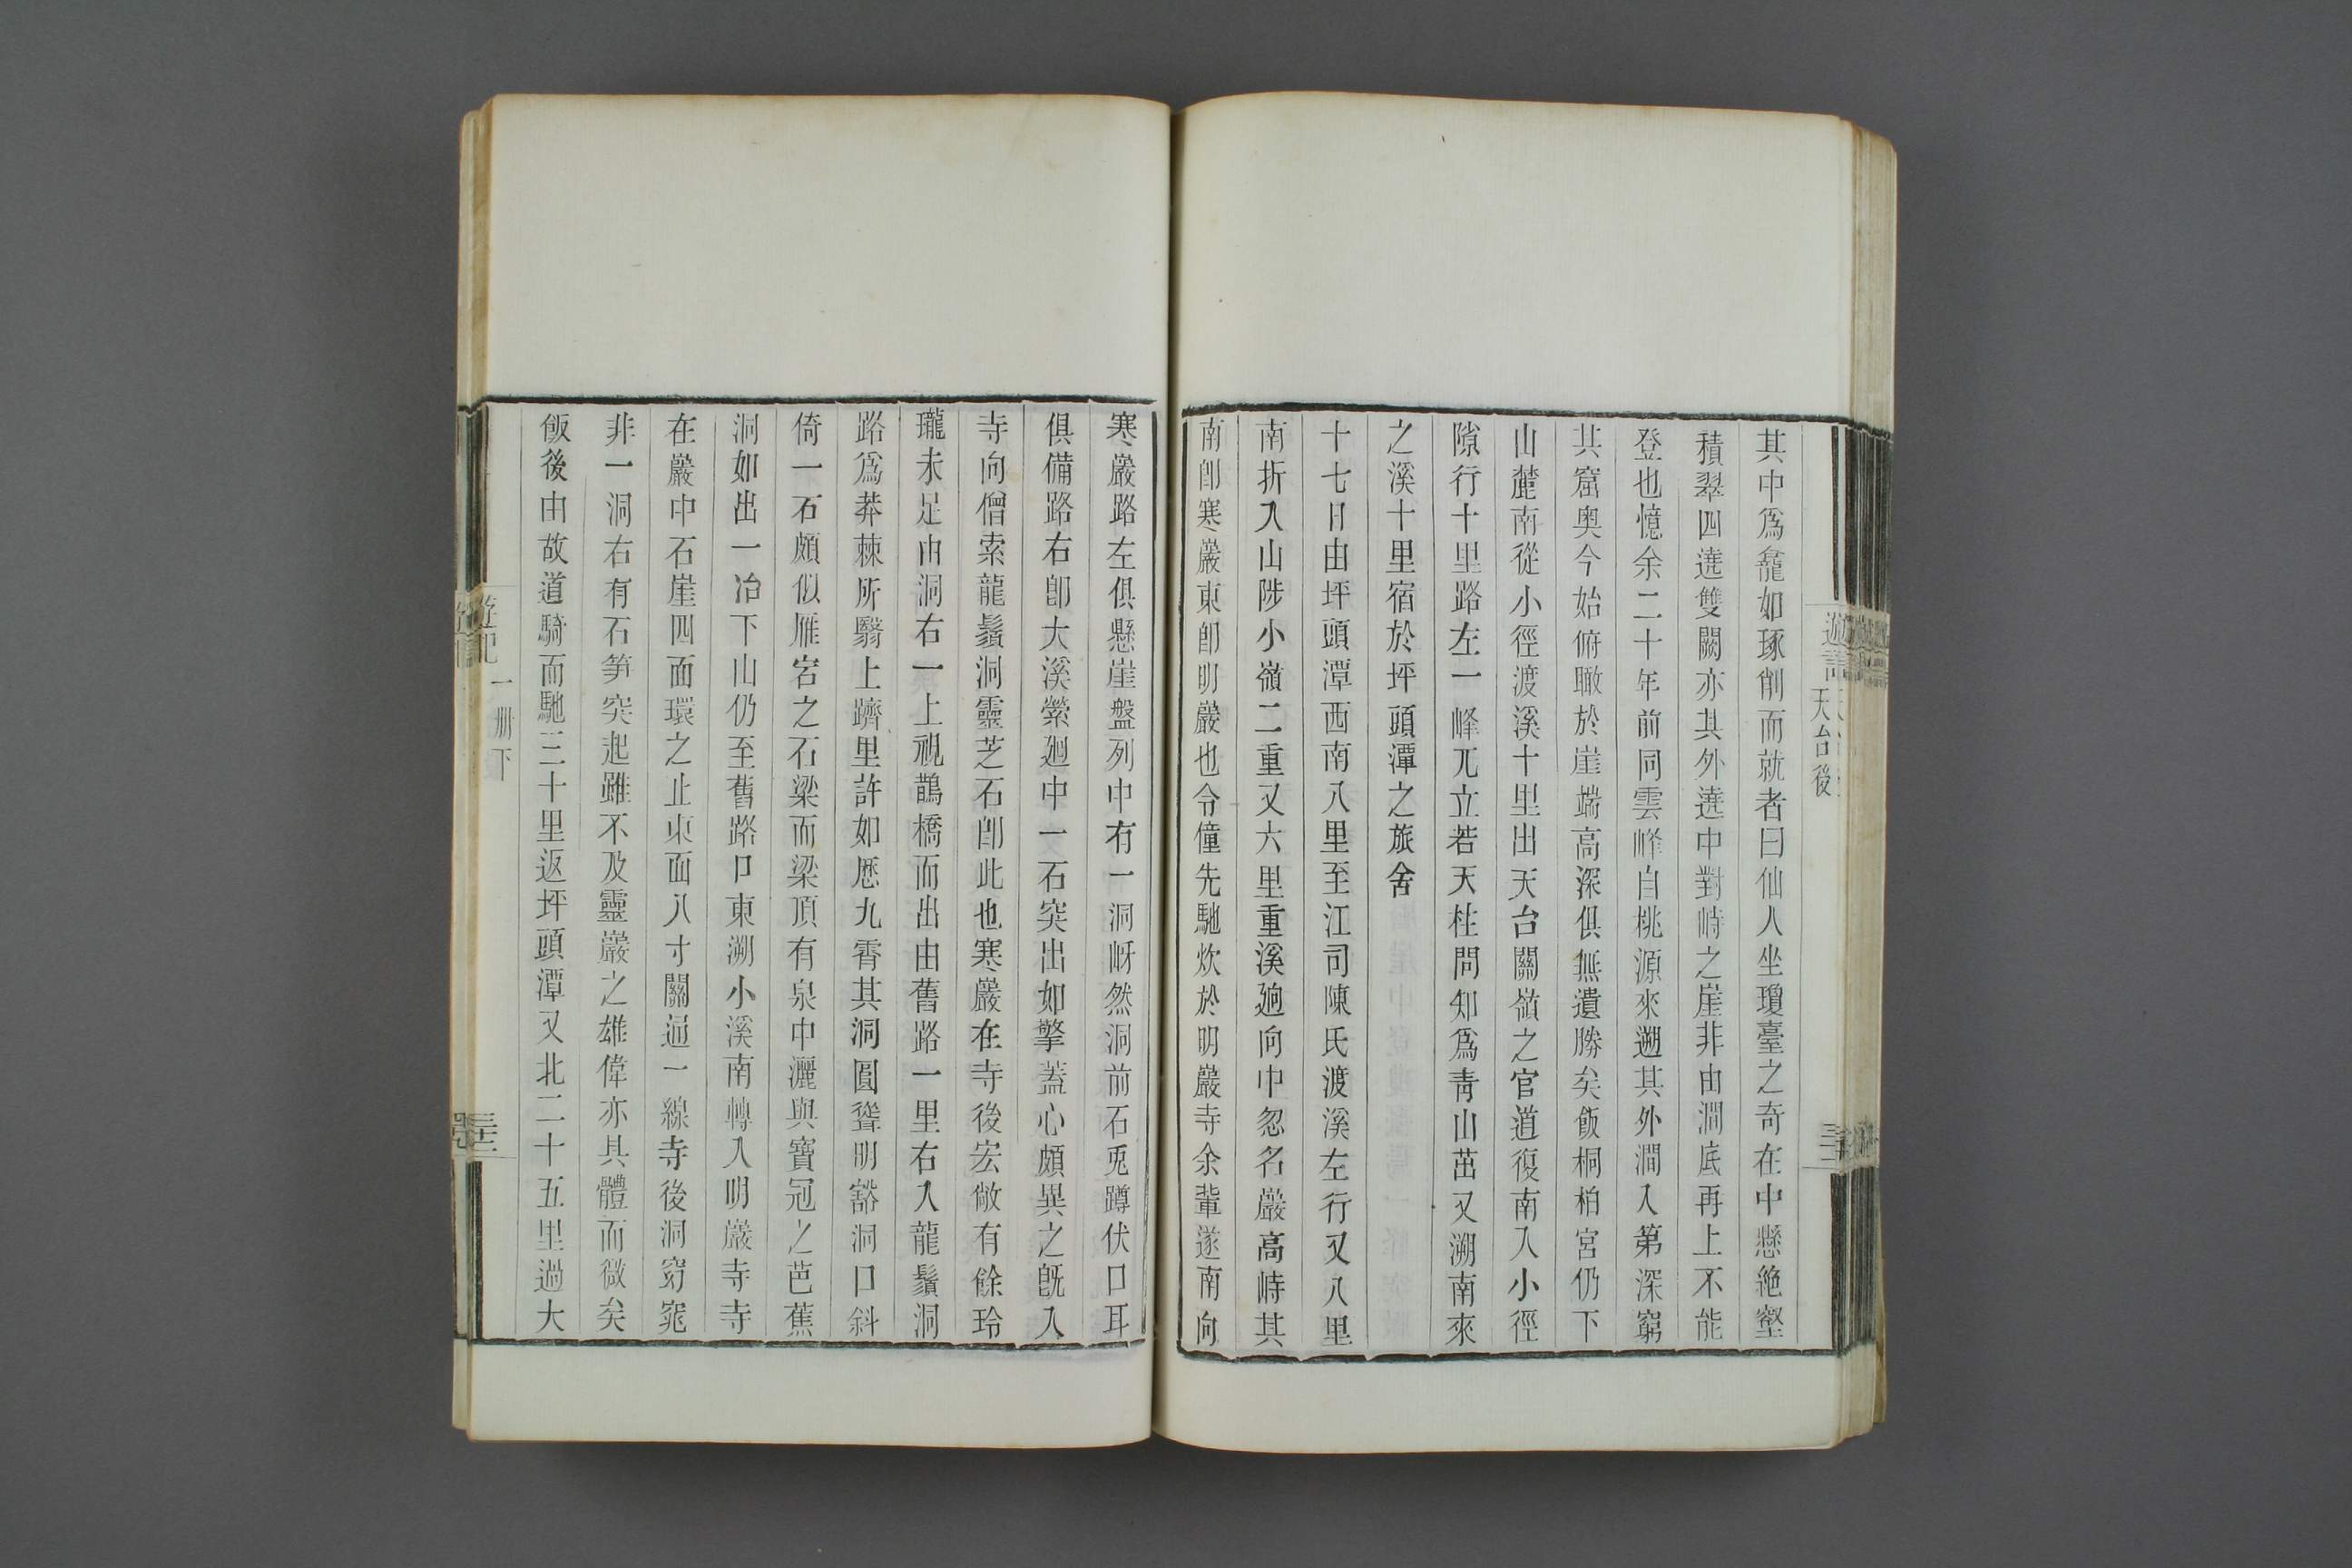 天台後
其中爲龕如琢削而就者曰仙人坐瓊臺之奇在中懸絶壑
積翠四遶雙闕亦其外遶中對峙之崖非由澗底再上不能
登也憶余二十年前同雲峰自桃源來遡其外澗入第深窮
其窟奥今始俯瞰於崖端高深俱無遺勝矣飯桐柏宮仍下
山麓南從小徑渡溪十里出天台關嶺之官道復南入小徑
隙行十里路左一峰兀立若天柱問知爲青山茁又溯南來
之溪十里宿於坪頭潭之旅舍
十七日由坪頭潭西南八里至江司陳氏渡溪左行又八里
南折入山陟小嶺二重又六里重溪廻向中忽名巖高峙其
南卽寒巖東卽明巖也令僮先馳炊於明巖寺余輩遂南向
寒巖路左俱懸崖盤列中有一洞岈然洞前石兎蹲伏口耳
俱備路右卽大溪縈廻中一石突出如擎蓋心頗異之旣入
寺向僧索龍鬚洞靈芝石卽此也寒巖在寺後宏敞有餘玲
瓏未足由洞右一上視鵲橋而出由舊路一里右入龍鬚洞
路爲莽棘所翳上躋里許如歷九霄其洞圓聳明豁洞口斜
倚一石頗似雁宕之石梁而梁頂有泉中灑與寶冠之芭蕉
洞如出一冶下山仍至舊路口東溯小溪南轉入明巖寺寺
在巖中石崖四面環之止東面八寸關通一線寺後洞窈窕
非一洞右有石笋突起雖不及靈巖之雄偉亦具體而微矣
飯後由故道騎而馳三十里返坪頭潭又北二十五里過大
遊記
一册下